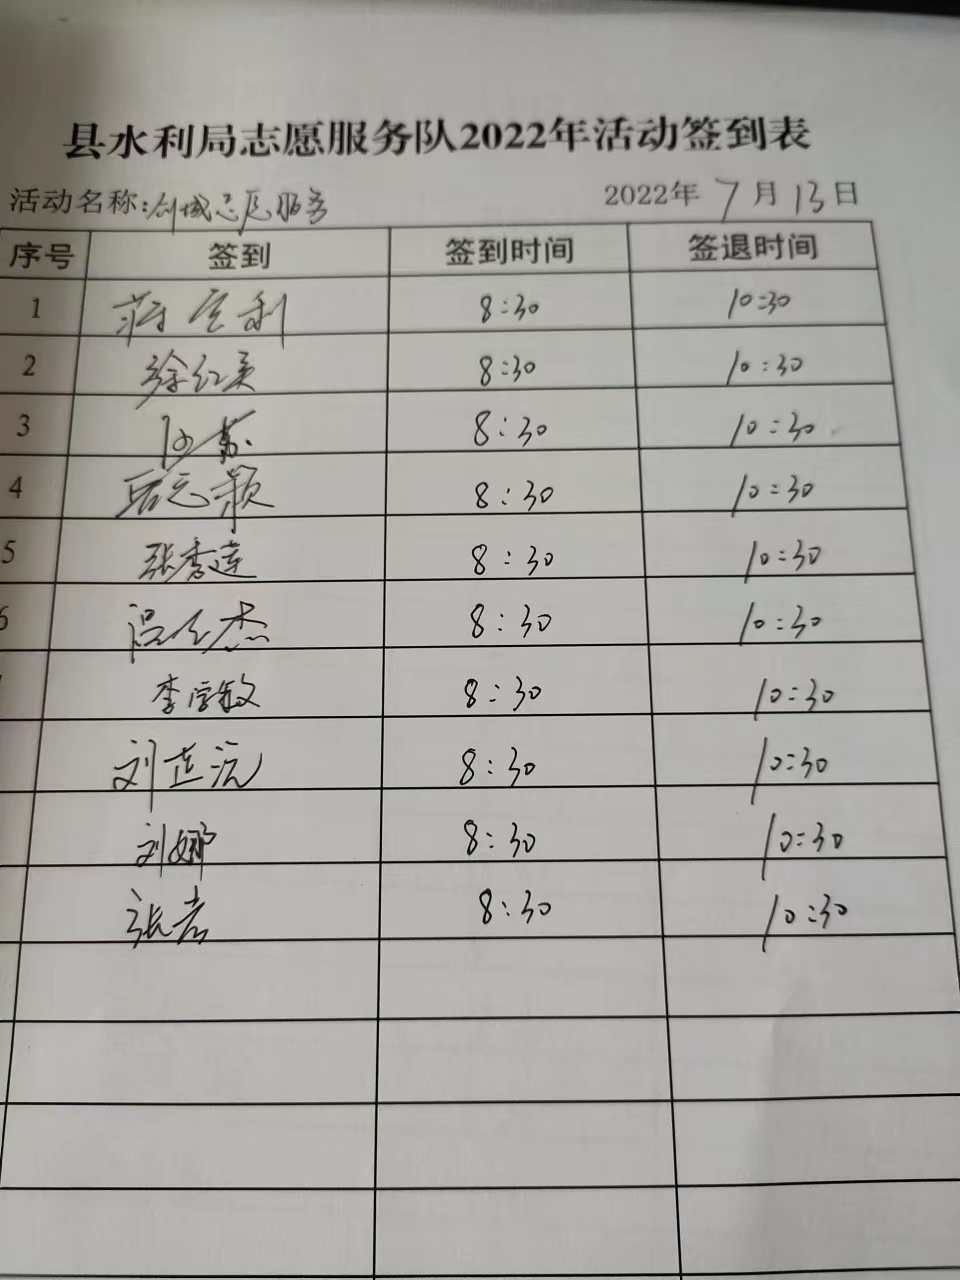 县水利局志愿服务队2022年活动签到表
活动名称:创城志愿服务 2022年7月13日
序号 签到 签到时间 签退时间
1 8:30 10:30
2 徐红英 8:30 10:30
3 8:30 10:30
4 8:30 10:30
5 张秀莲 8:30 10:30
6 杰 8:30 10:30
李学敏 8:30 10:30
刘莲沅 8:30 10:30
刘娜 8:30 10:30
张岩 8:30 10:30